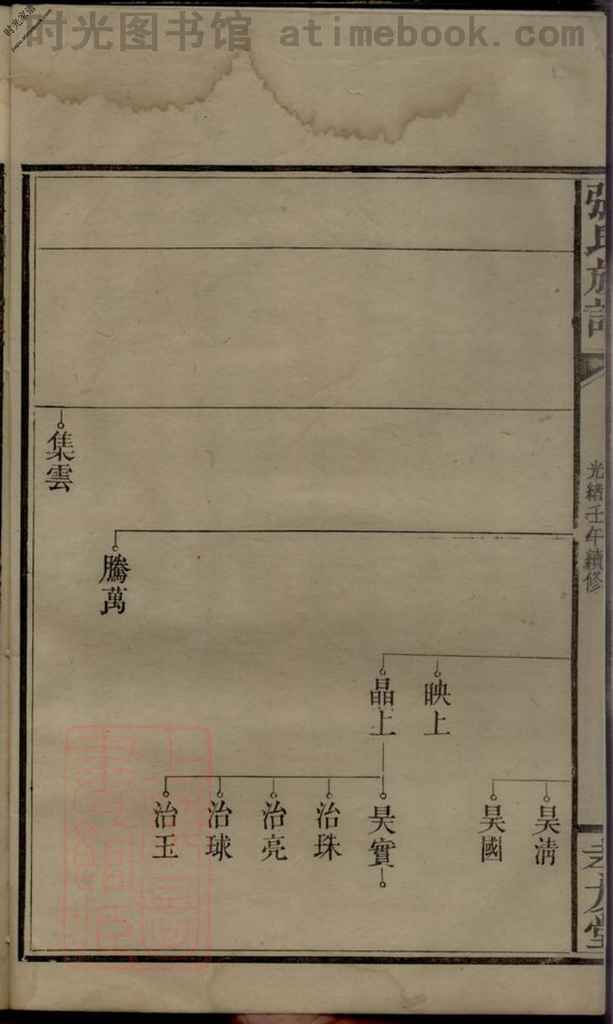 时光图书馆 atimebook.com
張氏族譜
光緒壬午續修
映上
晶上
昊淸
昊國
昊實
治珠
治亮
治球
治玉
騰萬
集雲